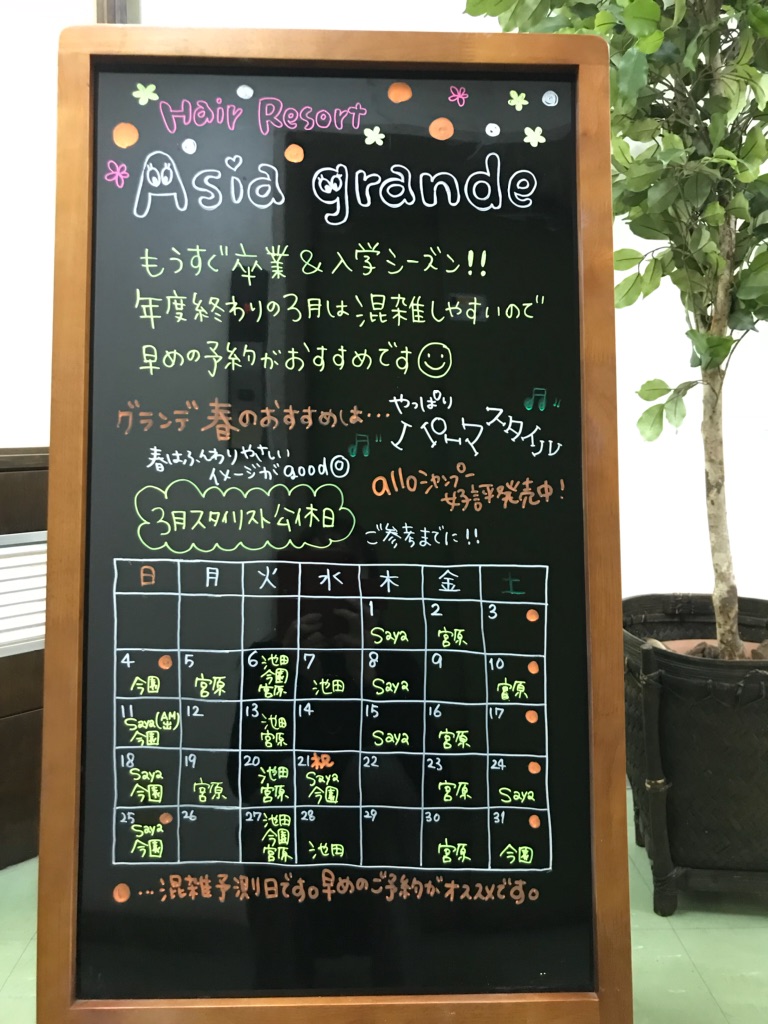 Hair Resort
Asia grande
もうすぐ卒業&入学シーズン!!
年度終わりの3月は混雑しやすいので
早めの予約がおすすめです
グランデ春のおすすめは…
やっぱり
パーマスタイル
春はふんわりやさしい
イメージがgood◎
alloシャンプー
好評発売中!
3月スタイリスト公休日
ご参考までに!!
日 月 火 水 木 金 土
1 2 3
Saya 宮原
4 5 6 池田 7 8 9 10
今園 宮原 今園 池田 Saya 宮原
宮原
11 Saya(AM出) 12 13 池田 14 15 16 17
今園 宮原 Saya 宮原
18 19 20 21祝 22 23 24
Saya 池田 Saya
今園 宮原 宮原 今園 宮原 Saya
25 26 27 池田 28 29 30 31
Saya 今園
今園 宮原 池田 宮原 今園
…混雑予測り日です。早めのご予約がオススメです。